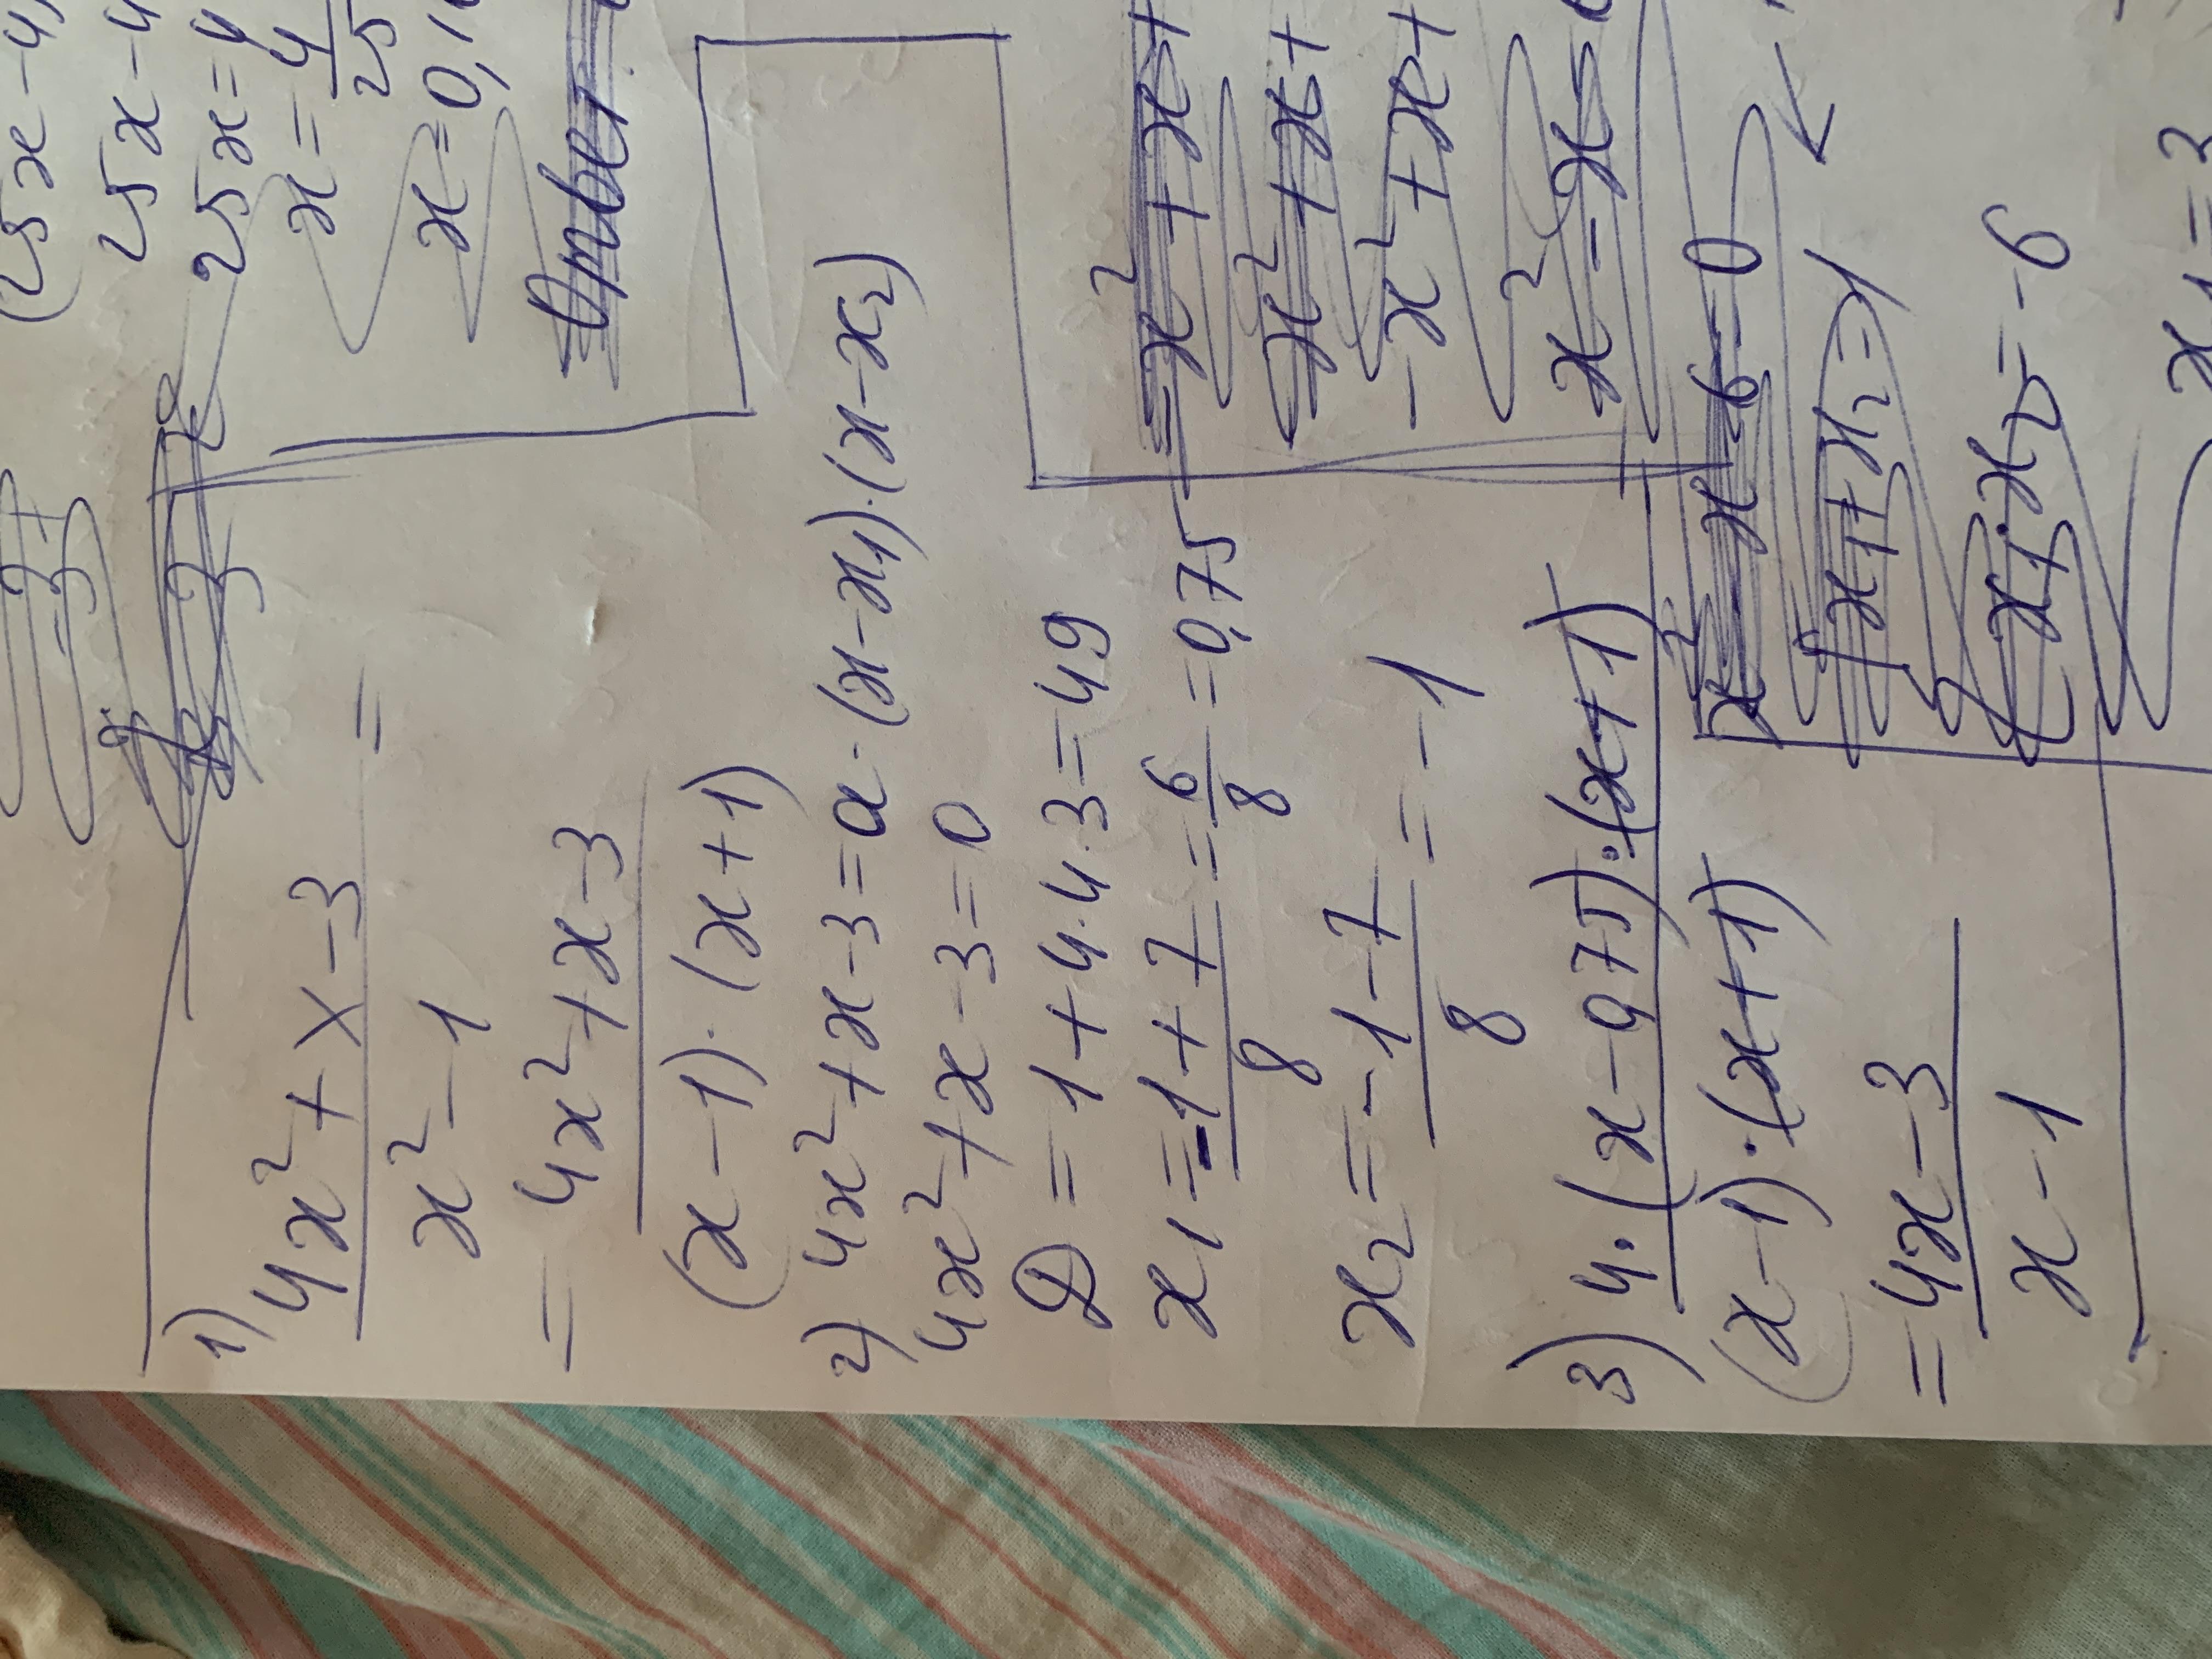 1) 4x²+x-3
x²-1 =
= 4x²+x-3
(x-1)·(x+1)
2) 4x²+x-3=a·(x-x₁)·(x-x₂)
4x²+x-3=0
D=1+4·4·3=49
x₁=-1+7/8=6/8=0,75
x₂=-1-7/8=-1
3) 4·(x-0,75)·(x+1)
(x-1)·(x+1)
=4x-3
x-1
(25x-4)
25x-4
25x=4
x=4/25
x=0,1
Ответ
=x²+x+
x²+x+
-x²+x+
x²-x-6
x²-x-6=0
x₁+x₂=1
x₁·x₂=-6
x₁=3